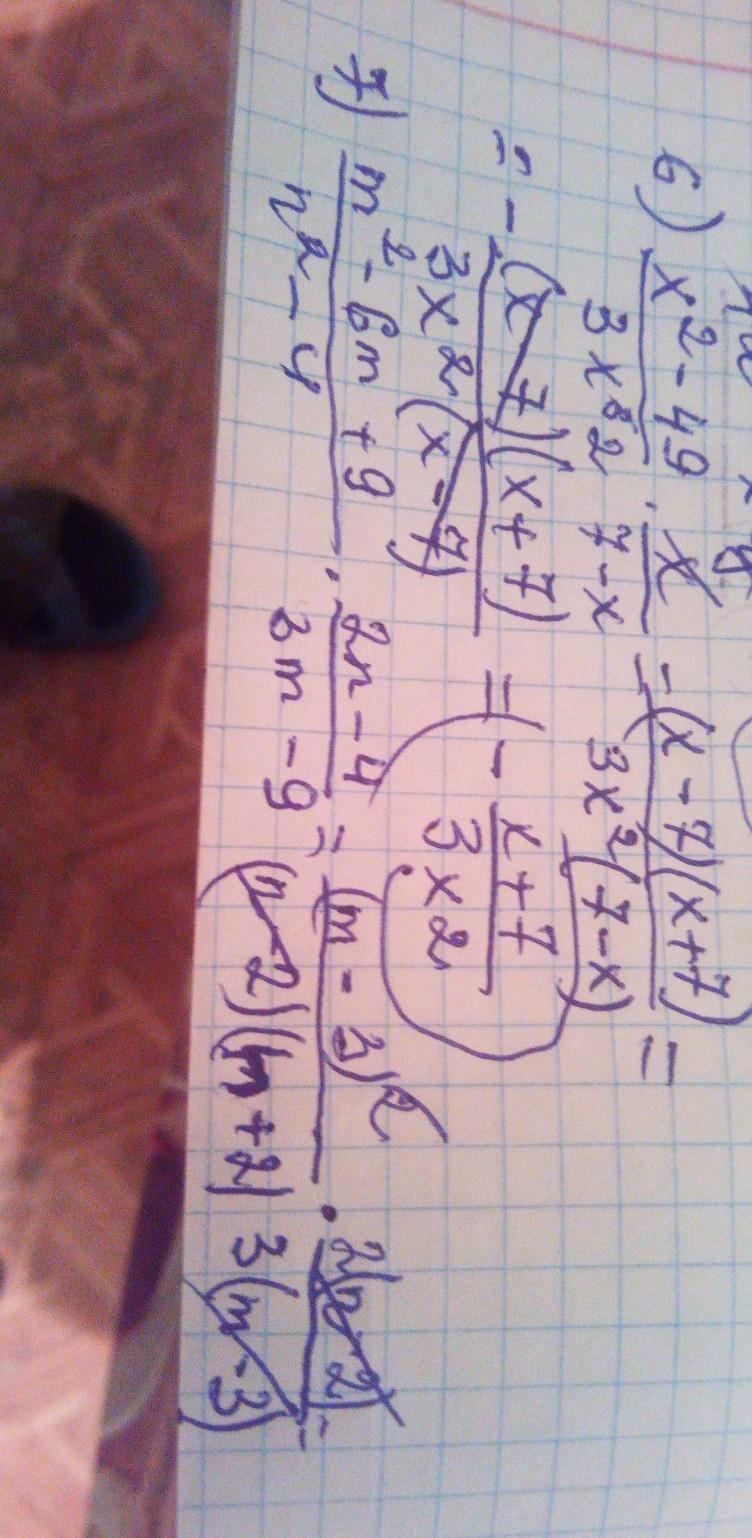 6) (x² - 49)/(3x² 2) · x/(7 - x) = ((x - 7)(x + 7))/(3x²(7 - x)) =
= - ((x - 7)(x + 7))/(3x2(x - 7)) = - (x + 7)/(3x2)
7) (m² - 6m + 9)/(n² - 4) · (2n - 4)/(3m - 9) = (m - 3)²/((n - 2)(n + 2)) · 2(n - 2)/(3(m - 3)) =